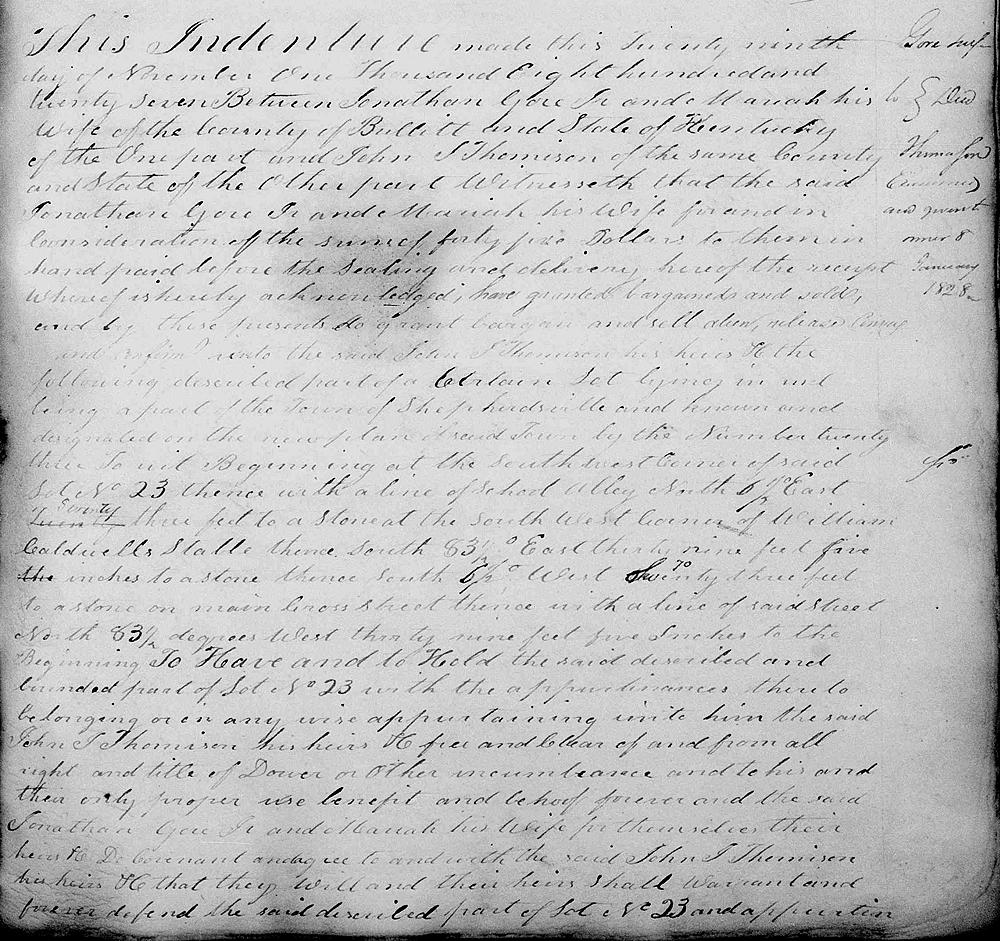 This Indenture made this Twenty ninth
day of November One Thousand Eight hundred and
twenty Seven Between Jonathan Gore Jr and Mariah his
Wife of the County of Bullitt and State of Kentucky
of the One part and John T Thomison of the same County
and State of the Other part Witnesseth that the said
Jonathan Gore Jr and Mariah his Wife for and in
Consideration of the sum of forty five Dollars to them in
hand paid before the Sealing and delivery hereof the receipt
Whereof is hereby acknowledged; have granted bargained and sold,
and by these presents do grant bargain and sell alien, release Convey
and confirm unto the said John T Thomison his heirs &c the
following described part of a Certain Lot lying in and
being a part of the Town of Shepherdsville and known and
designated on the new plan of said Town by the Number twenty
three To wit Beginning at the Southwest Corner of said
Lot No 23 thence with a line of School Alley North 6½° East
Seventy
Twenty three feet to a Stone at the South West Corner of William
Caldwells Stable thence South 83½° East thirty nine feet five
the inches to a stone thence South 6½° West Seventy three feet
to a stone on main Cross Street thence with a line of said Street
North 83½ degrees West thirty nine feet five Inches to the
Beginning To Have and to Hold the said described and
bounded part of Lot No 23 with the appurtinances thereto
belonging or en any wise appurtaining unto him the said
John T Thomison his heirs &c free and Clear of and from all
right and title of Dower or Other incumbeance and to his and
their only proper use benefit and behoof forever and the said
Jonathan Gore Jr and Mariah his Wife for themselves their
heirs &c Do Covenant and agree to and with the said John T Thomison
his heirs &c that they Will and their heirs Shall Warrant and
forever defend the said described part of Lot No 23 and appurtin
Gore
to } Deed
Thomason
Examined
and
8
January
1828